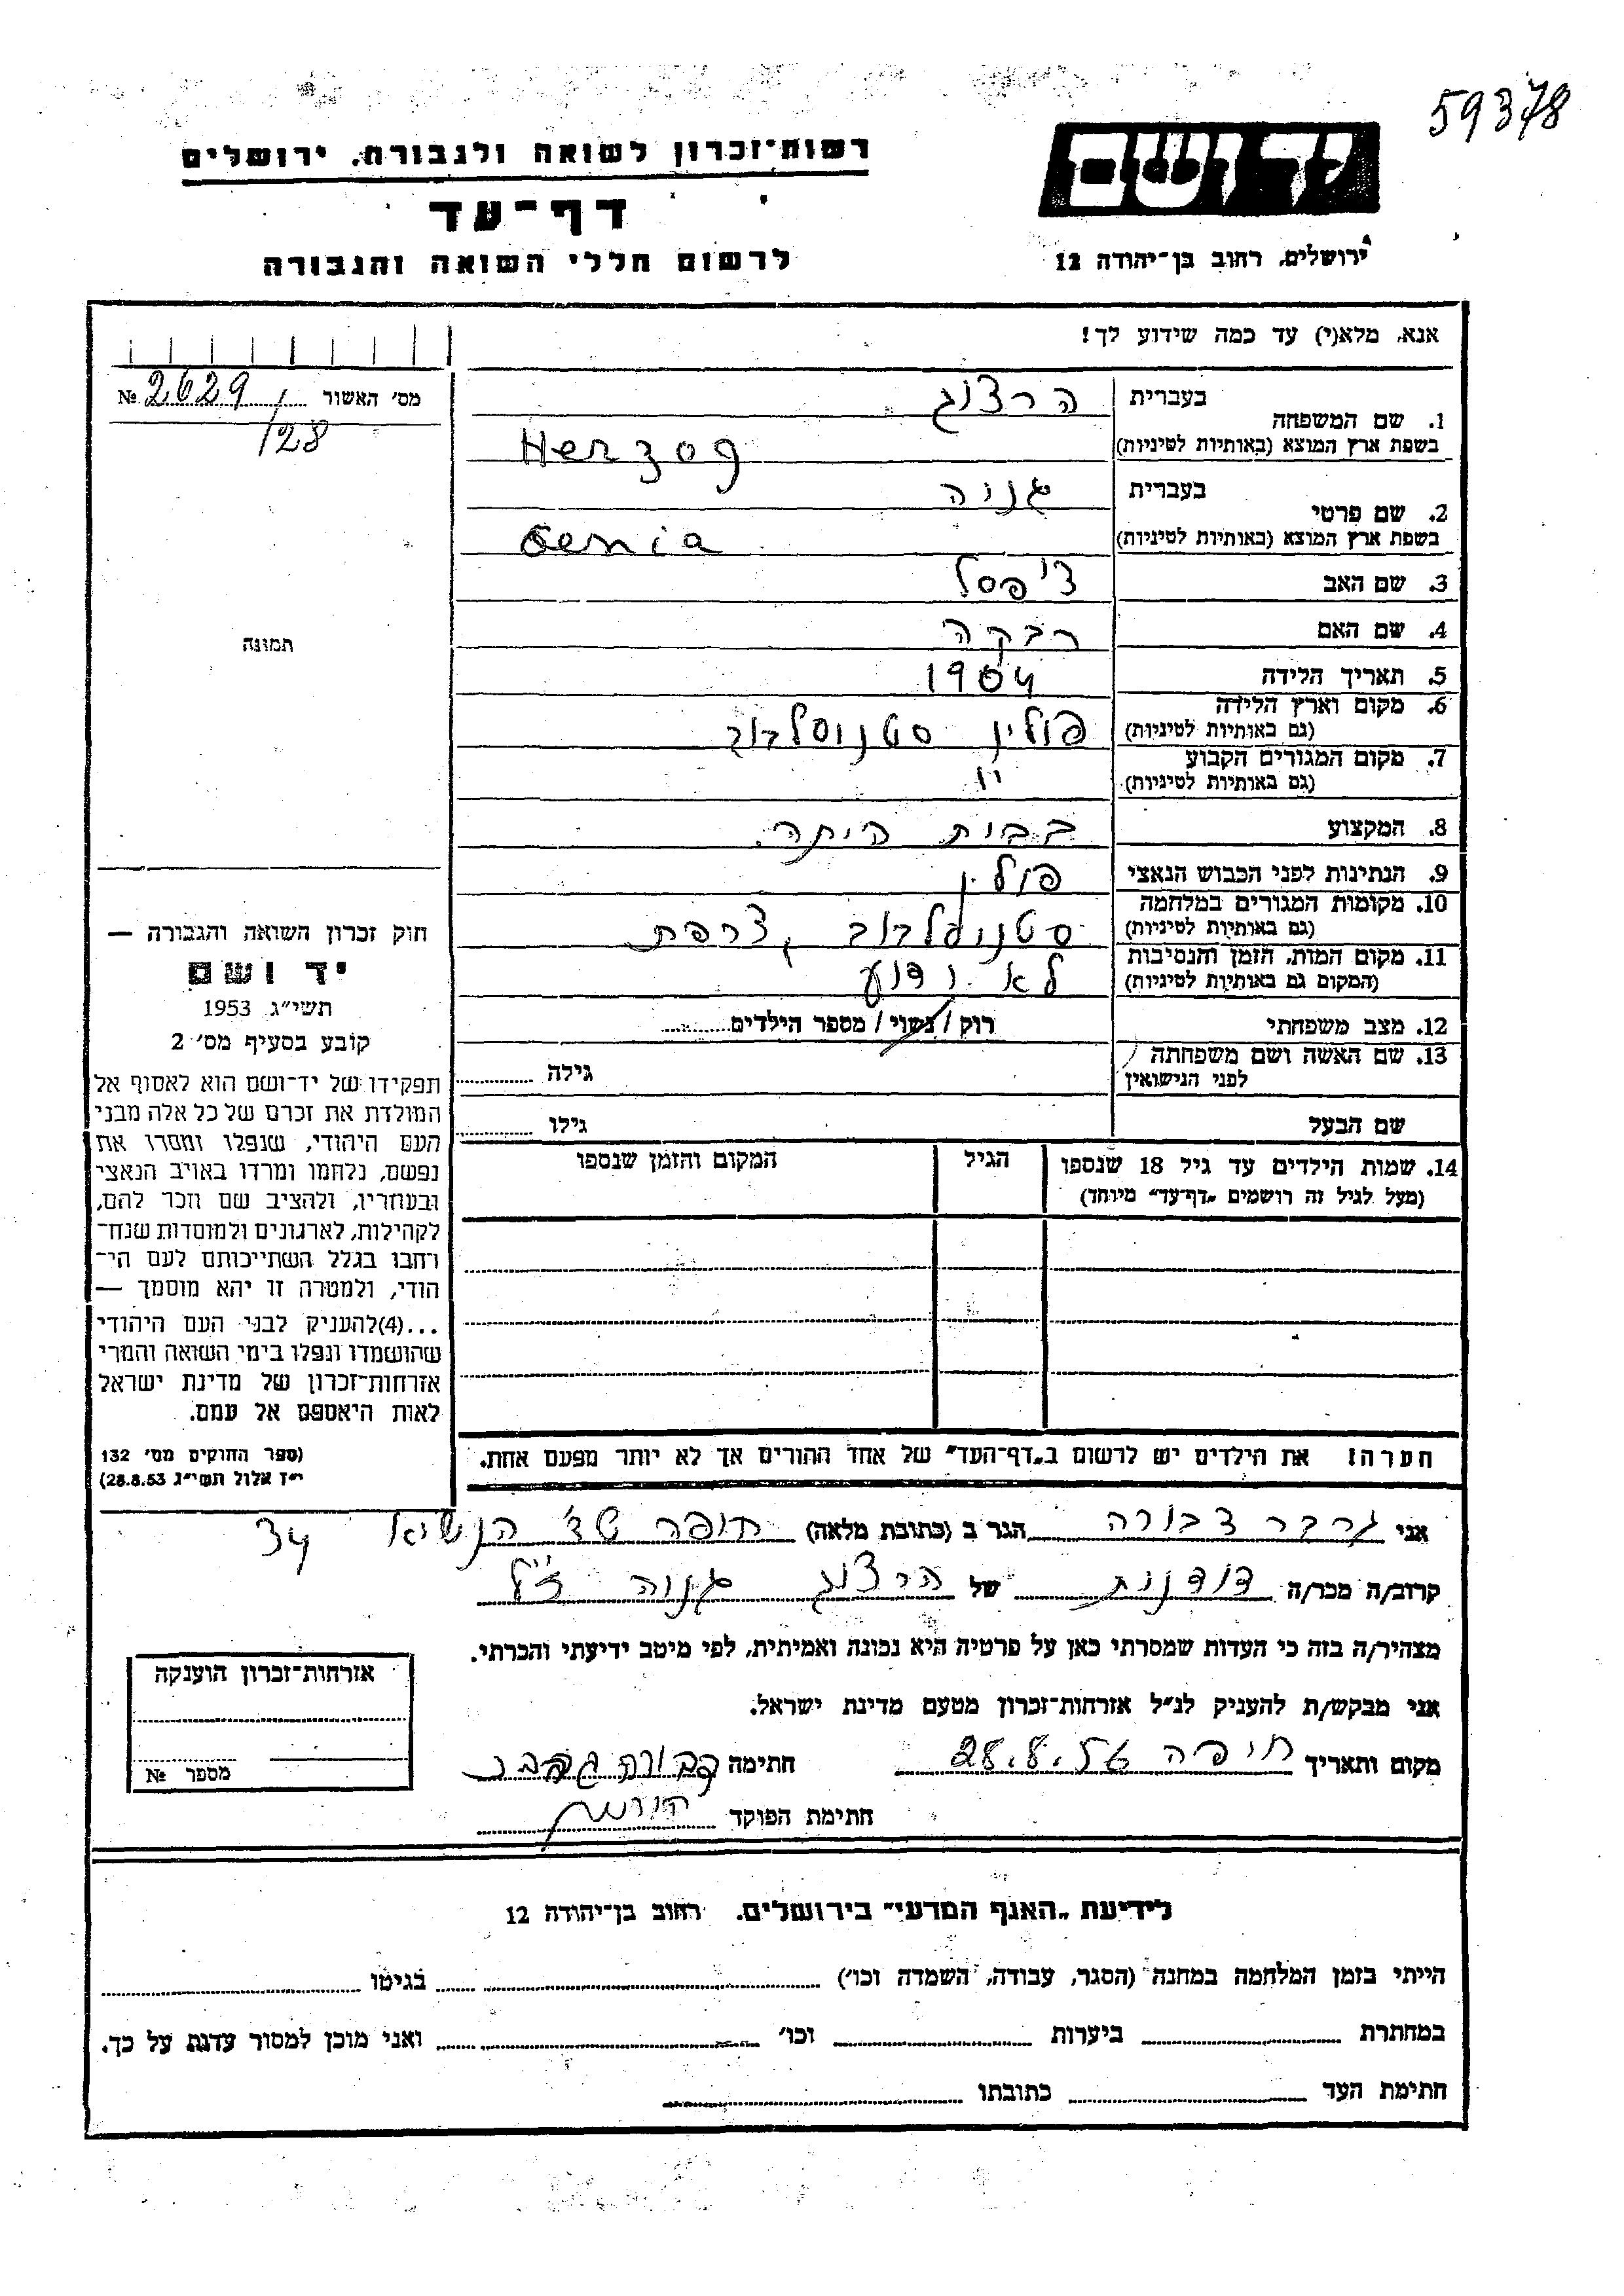 59378
יד ושם
רשות־זכרון לשואה ולגבורה, ירושלים
דף־עד
ירושלים, רחוב בן־יהודה 12
לרשום חללי השואה והגבורה
אנא, מלא(י) עד כמה שידוע לך!
מס׳ האשור № 2629
/28
תמונה
1. שם המשפחה בעברית הרצוג
בשפת ארץ המוצא (באותיות לטיניות) Herzog
2. שם פרטי בעברית גניה
בשפת ארץ המוצא (באותיות לטיניות) Genia
3. שם האב
4. שם האם רבקה
5. תאריך הלידה 1904
6. מקום וארץ הלידה פולין סטניסלבוב
(גם באותיות לטיניות)
7. מקום המגורים הקבוע "
(גם באותיות לטיניות)
8. המקצוע בבית היתה
9. הנתינות לפני הכבוש הנאצי פולין
10. מקומות המגורים במלחמה סטניסלבוב, צרפת
(גם באותיות לטיניות)
11. מקום המות, הזמן והנסיבות לא ידוע
(המקום גם באותיות לטיניות)
12. מצב משפחתי רוק / נשוי / מספר הילדים
13. שם האשה ושם משפחתה גילה
לפני הנישואין
שם הבעל גילו
14. שמות הילדים עד גיל 18 שנספו הגיל המקום והזמן שנספו
(מעל לגיל זה רושמים „דף־עד” מיוחד)
הערה! את הילדים יש לרשום ב„דף־העד” של אחד ההורים אך לא יותר מפעם אחת.
חוק זכרון השואה והגבורה —
יד ושם
תשי״ג 1953
קובע בסעיף מס׳ 2
תפקידו של יד־ושם הוא לאסוף אל
המולדת את זכרם של כל אלה מבני
העם היהודי, שנפלו ומסרו את
נפשם, נלחמו ומרדו באויב הנאצי
ובעוזריו, ולהציב שם וזכר להם,
לקהילות, לארגונים ולמוסדות שנח־
רחבו בגלל השתייכותם לעם הי־
הודי, ולמטרה זו יהא מוסמך —
...(4)להעניק לבני העם היהודי
שהושמדו ונפלו בימי השואה והמרי
אזרחות־זכרון של מדינת ישראל
לאות היאספם אל עמם.
(ספר החוקים מס׳ 132
י״ז אלול תשי״ג 28.8.53)
אני גרבר דבורה הגר ב (כתובת מלאה) חיפה שד׳ הנשיא 34
קרוב/ה מכר/ה דודנית של הרצוג גניה ז״ל
מצהיר/ה בזה כי העדות שמסרתי כאן על פרטיה היא נכונה ואמיתית, לפי מיטב ידיעתי והכרתי.
אני מבקש/ת להעניק לנ״ל אזרחות־זכרון מטעם מדינת ישראל.
מקום ותאריך חיפה 28.8.56 חתימה דבורה גרבר
חתימת הפוקד
אזרחות־זכרון הוענקה
מספר №
לידיעת „האגף המדעי” בירושלים, רחוב בן־יהודה 12
הייתי בזמן המלחמה במחנה (הסגר, עבודה, השמדה וכו׳) בגיטו
במחתרת ביערות וכו׳ ואני מוכן למסור עדות על כך.
חתימת העד כתובתו